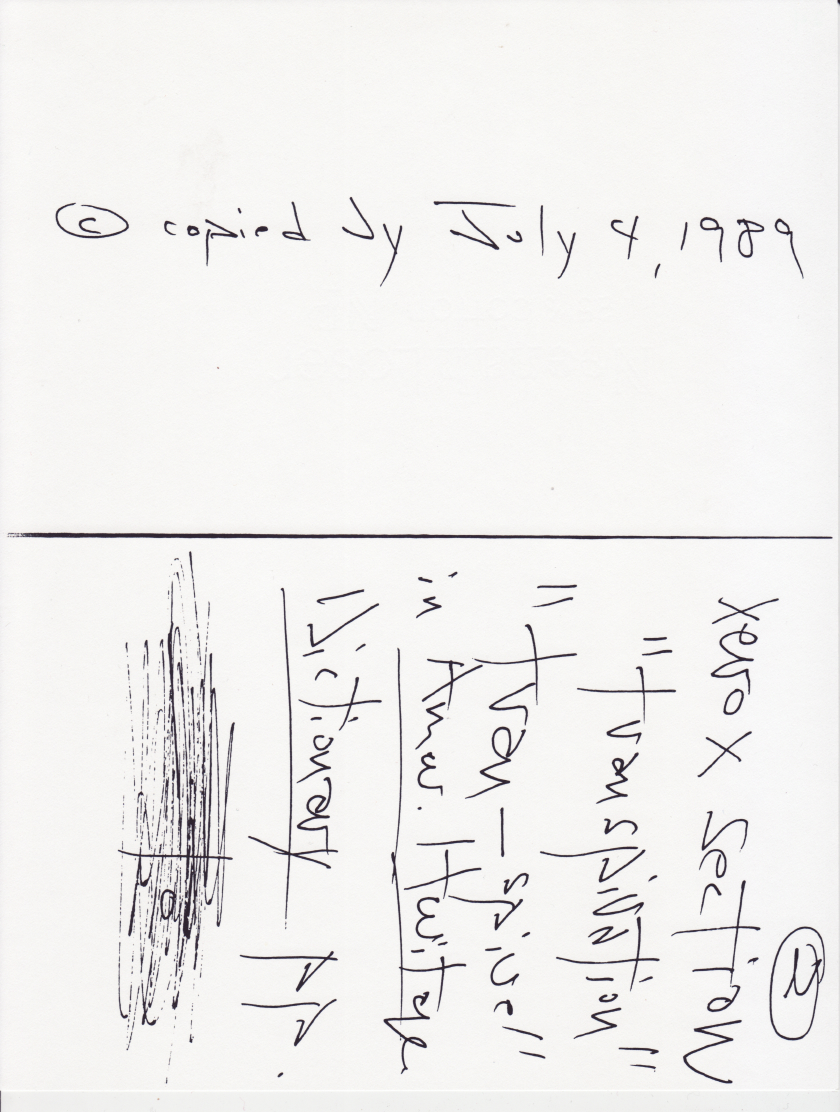 © copied by July 4, 1989
xerox section
"transpiration"
"tran-spire"
in Amer. Heritage
Dictionary pp.